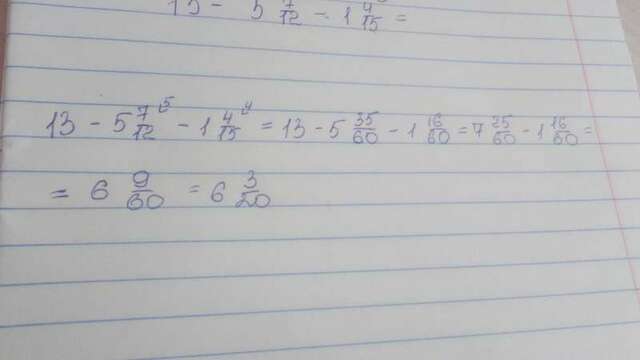 13 - 5 7/12 - 1 4/15 =
13 - 5 7/12 ⁵ - 1 4/15 ⁴ = 13 - 5 35/60 - 1 16/60 = 7 25/60 - 1 16/60 =
= 6 9/60 = 6 3/20